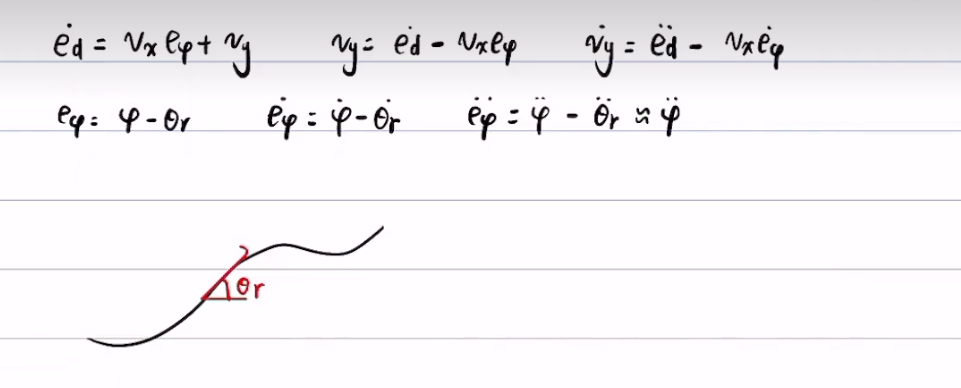 ėd = vx eφ + vy   vy = ėd - vx eφ   v̇y = ëd - vx ėφ
eφ = φ - θr   ėφ = φ̇ - θ̇r   ëφ = φ̈ - θ̈r ≈ φ̈
θr